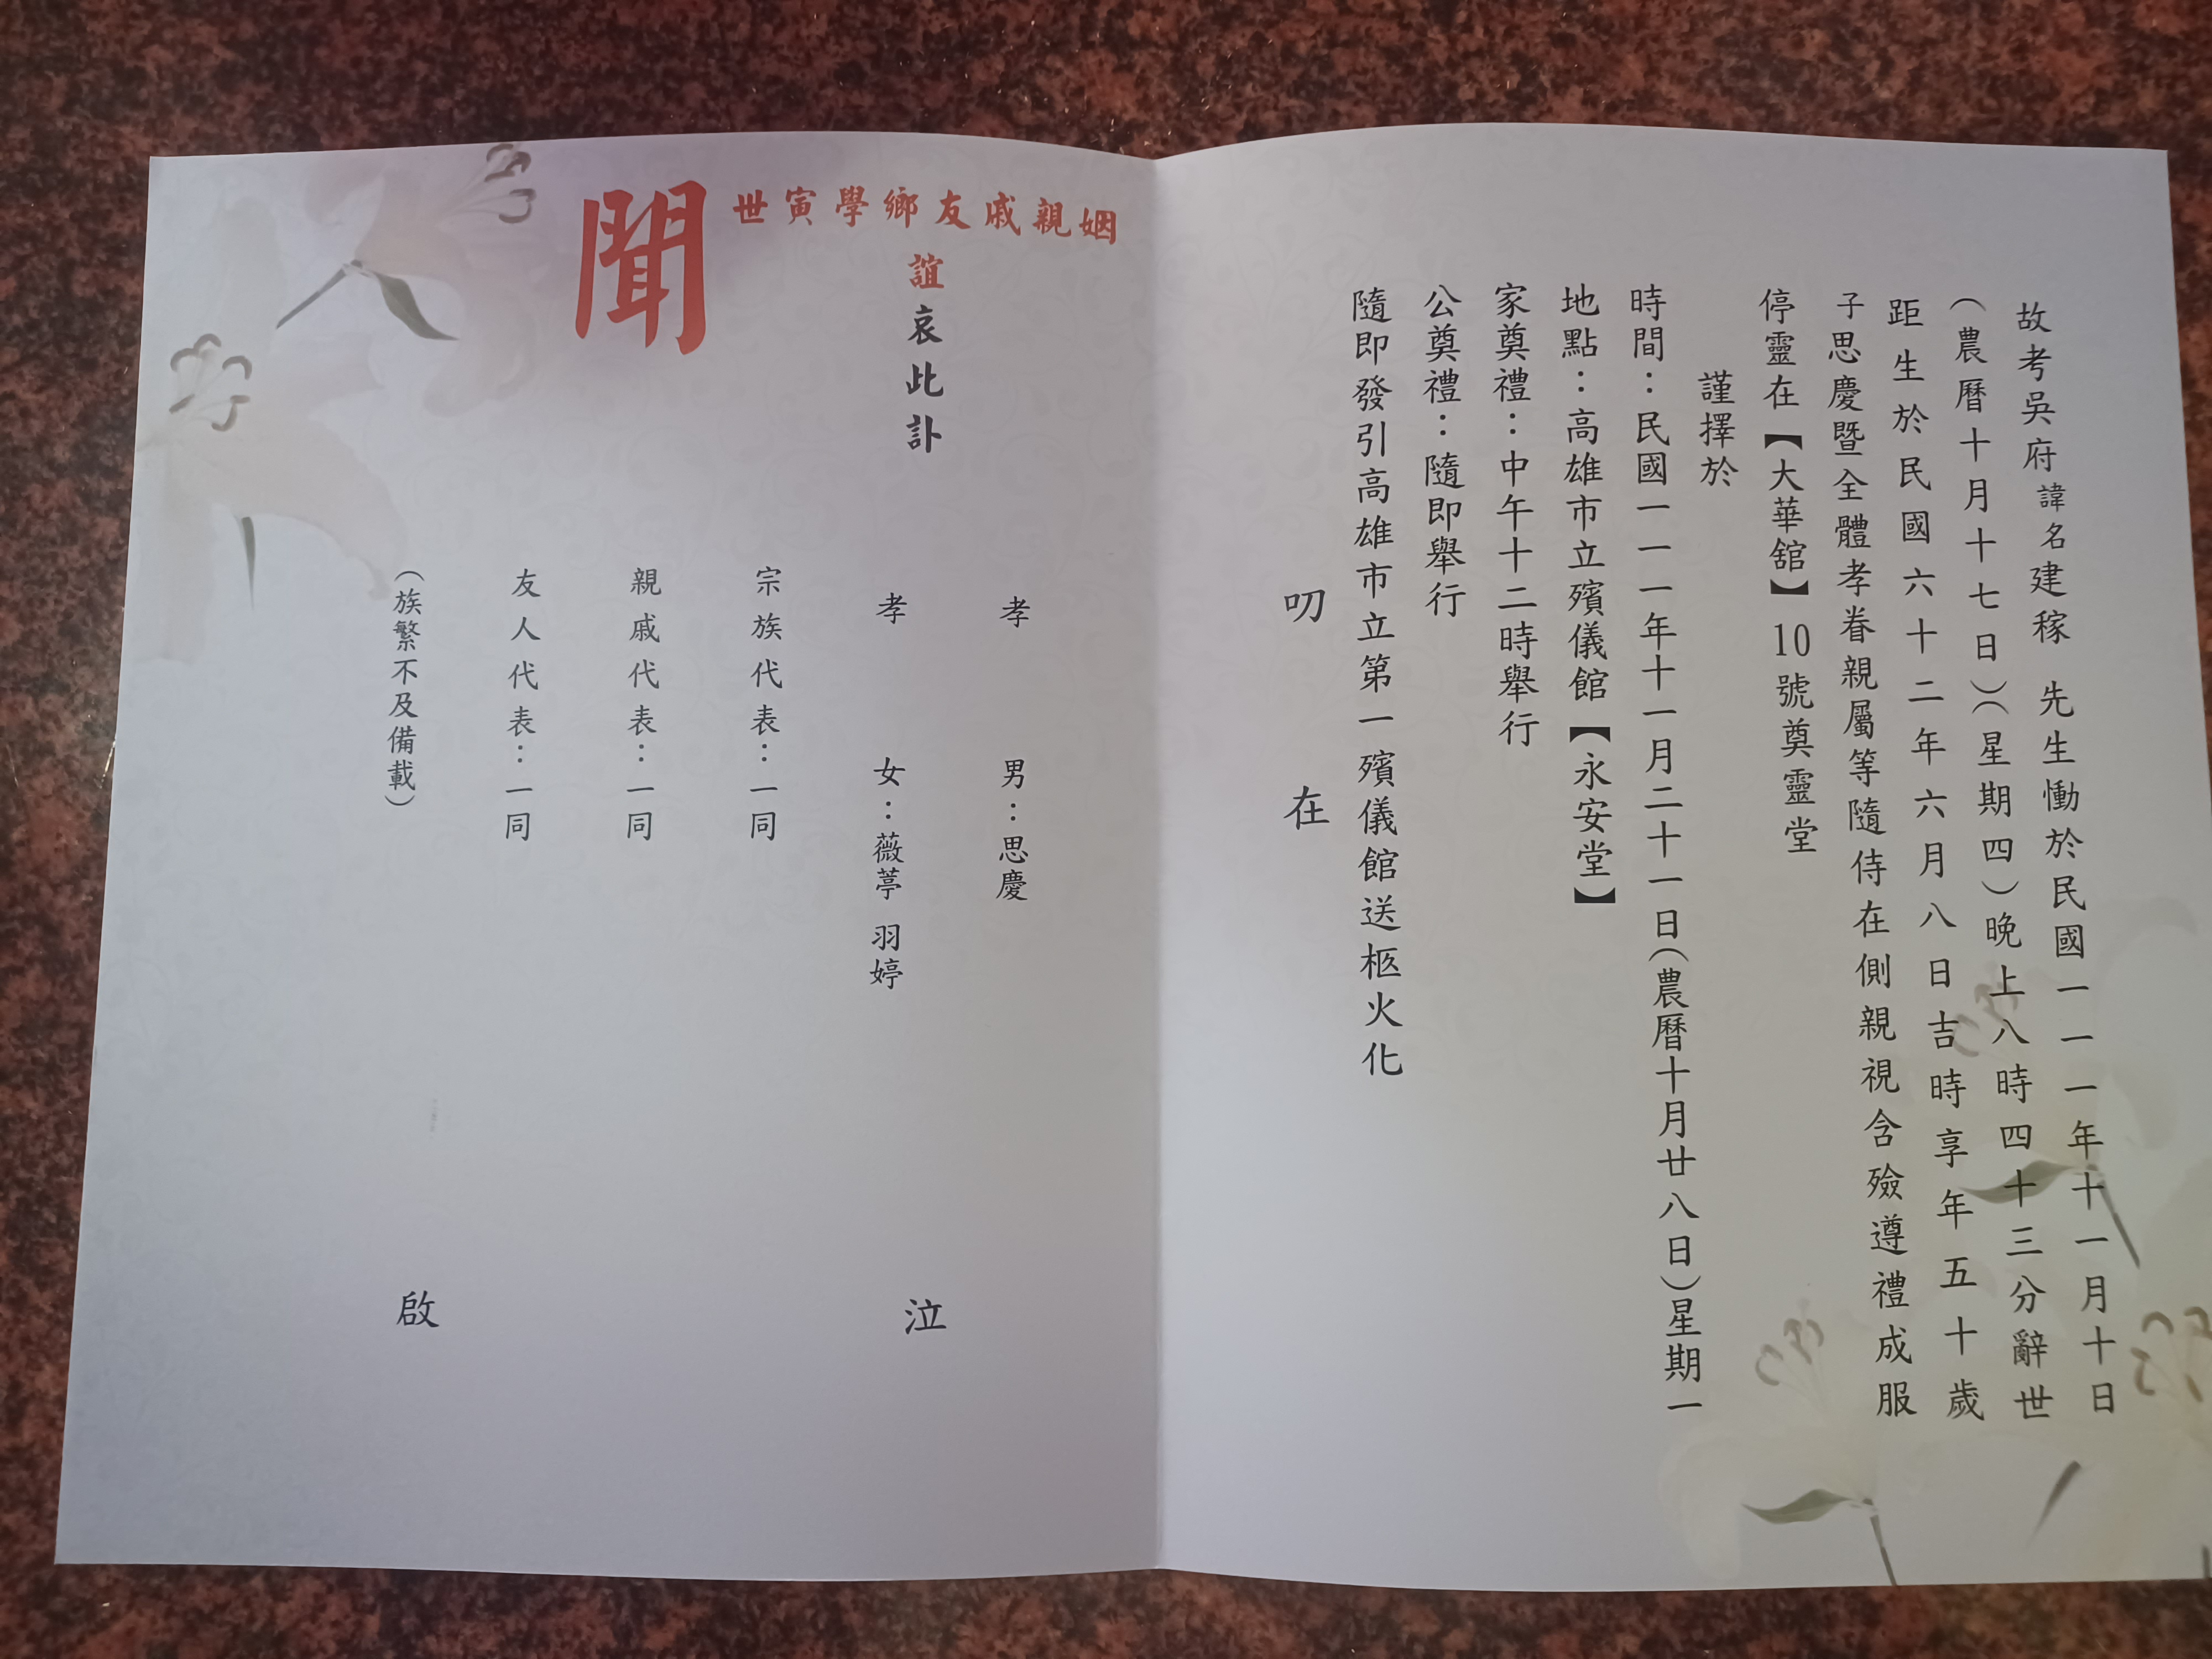 故考吳府諱名建稼 先生慟於民國一一一年十一月十日
(農曆十月十七日)(星期四)晚上八時四十三分辭世
距生於民國六十二年六月八日吉時享年五十歲
子思慶暨全體孝眷親屬等隨侍在側親視含殮遵禮成服
停靈在【大華舘】10號奠靈堂
謹擇於
時間：民國一一一年十一月二十一日(農曆十月廿八日)星期一
地點：高雄市立殯儀館【永安堂】
家奠禮：中午十二時舉行
公奠禮：隨即舉行
隨即發引高雄市立第一殯儀館送柩火化
叨在
姻親戚友鄉學寅世
誼哀此訃
聞
孝男：思慶
孝女：薇葶 羽婷
宗族代表：一同
親戚代表：一同
友人代表：一同
(族繁不及備載)
泣
啟